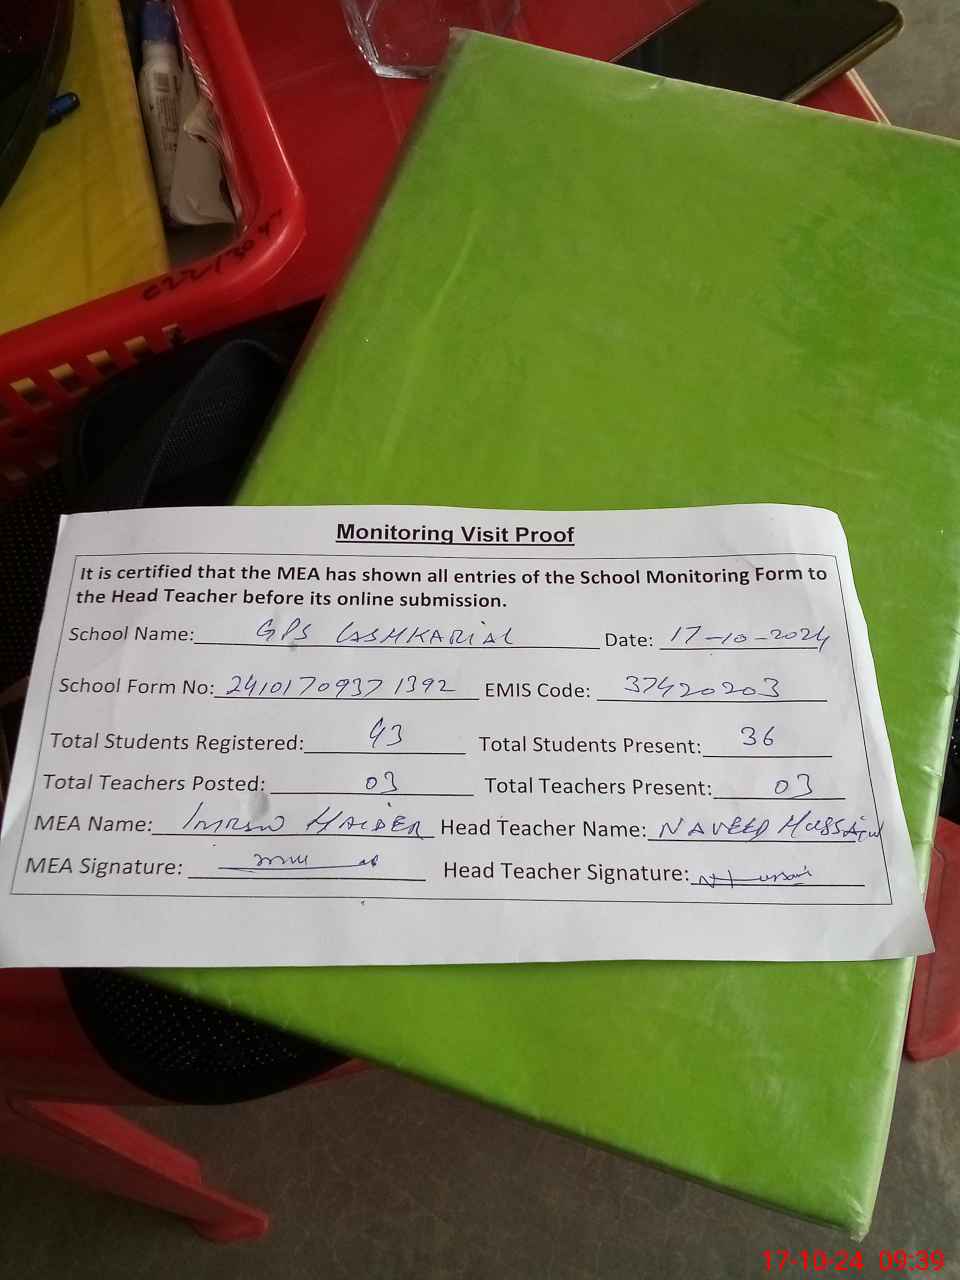 Monitoring Visit Proof
It is certified that the MEA has shown all entries of the School Monitoring Form to
the Head Teacher before its online submission.
School Name: GPS LASHKARIAL Date: 17-10-2024
School Form No: 2410170937 1392 EMIS Code: 37420203
Total Students Registered: 43 Total Students Present: 36
Total Teachers Posted: 03 Total Teachers Present: 03
MEA Name: Imran HAIDER Head Teacher Name: NAVEED HUSSAIN
MEA Signature: Head Teacher Signature:
17-10-24 09:39